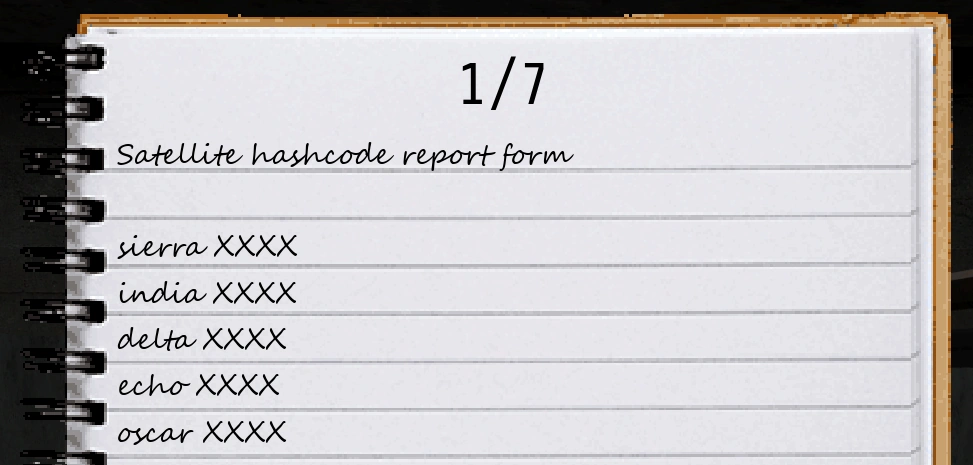 1/7
Satellite hashcode report form
sierra XXXX
india XXXX
delta XXXX
echo XXXX
oscar XXXX